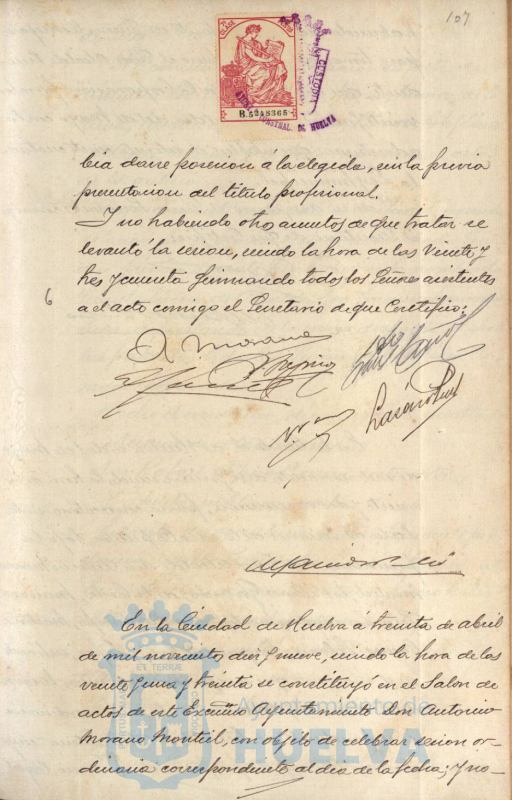 107
CLASE
B.5248365
CUSTODIA
CONSTNAL. DE HUELVA
bia darse posesion á la elegida, sin la previa
presentacion del titulo profesional.
Y no habiendo otro asuntos de que tratar se
levantó la sesion, siendo la hora de las veinte y
tres y cincuenta firmando todos los Señores asistentes
6
a el acto comigo el Secretario de que Certifico:
A Morano
Lazaro
En la Ciudad de Huelva á treinta de abril
de mil novecientos diez y nueve, siendo la hora de las
veinte y una y treinta se constituyó en el Salon de
actos de este Excmo Ayuntamiento Don Antonio
Morano Montiel, con objeto de celebrar sesion or-
dinaria correspondiente al dia de la fecha; y no-
ET TERRÆ
Ayuntamiento de
HUELVA